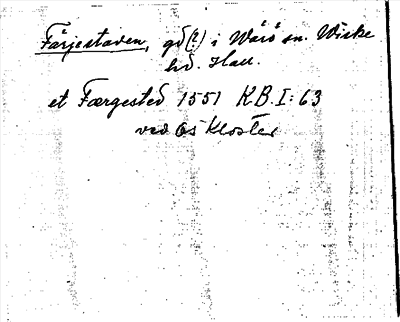 Färjestaden, gd (?) i Wärö sn. Wiske
hd. Hall.
et Færgested 1551 KB. I: 63
ved Ås Kloster